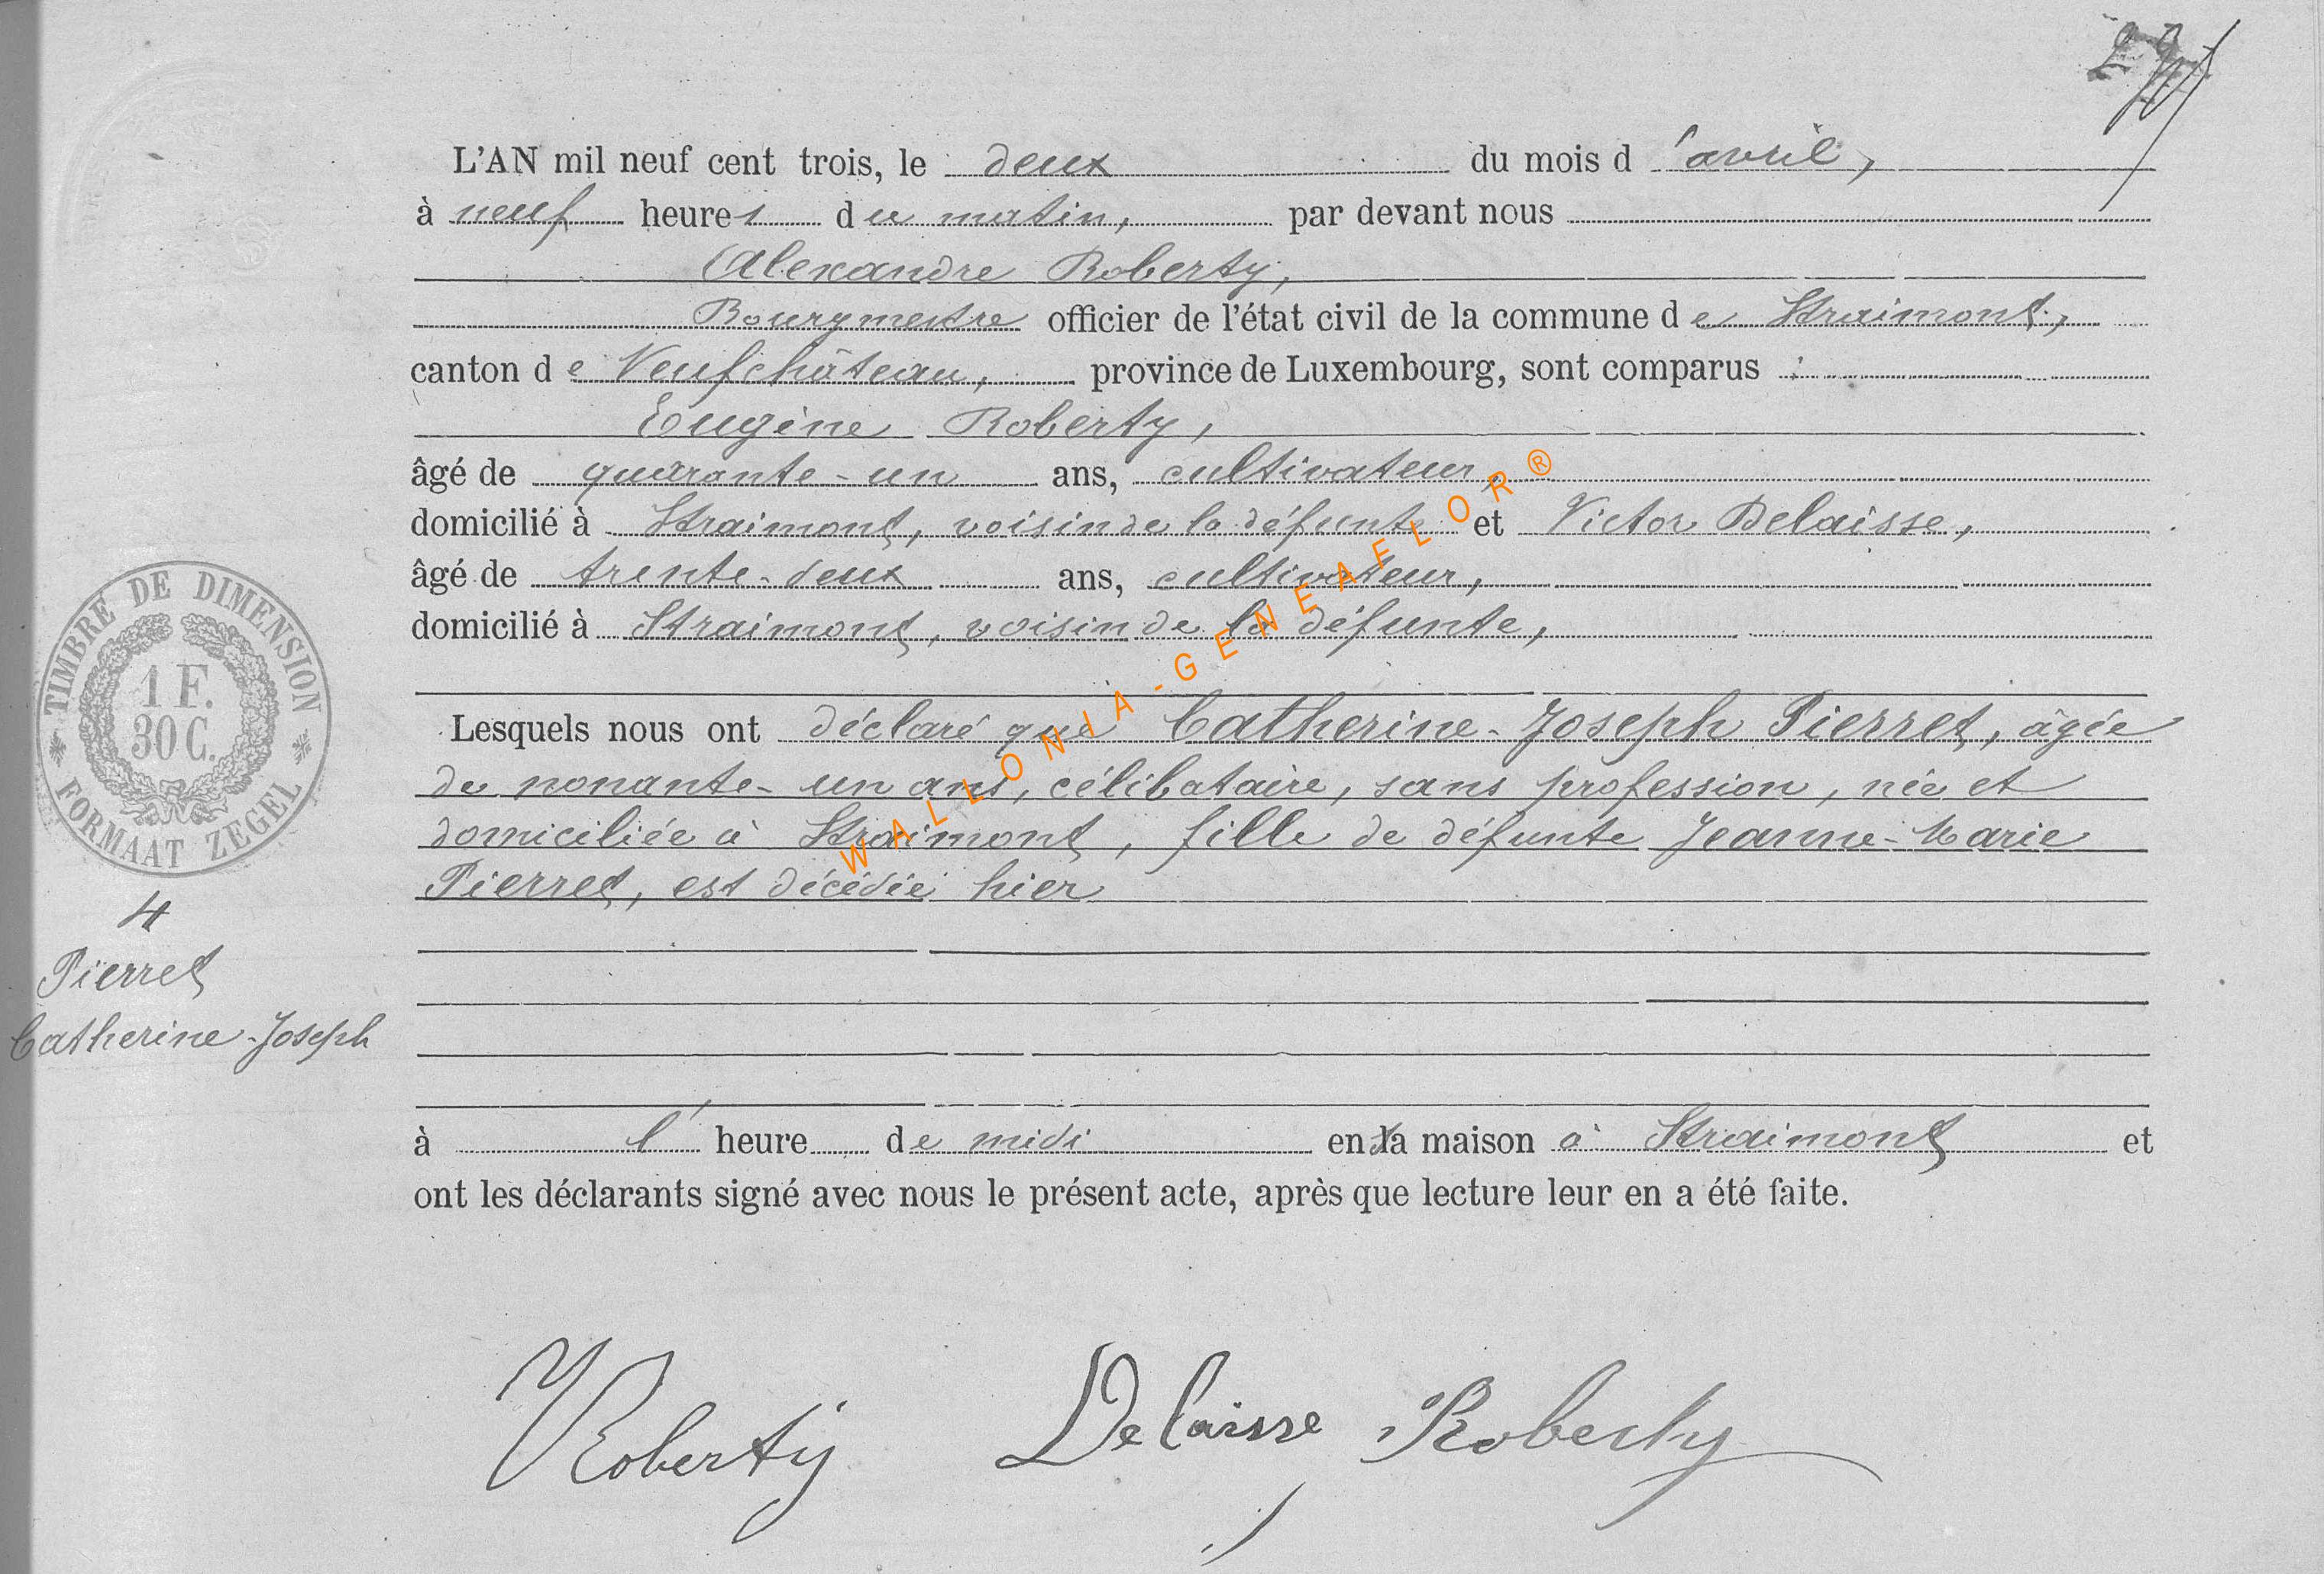 L'AN mil neuf cent trois, le deux du mois d'avril,
à neuf heures du matin, par devant nous
Alexandre Roberty,
Bourgmestre officier de l'état civil de la commune de Straimont,
canton de Neufchâteau, province de Luxembourg, sont comparus :
Eugène Roberty,
âgé de quarante-un ans, cultivateur,
domicilié à Straimont, voisin de la défunte et Victor Delaisse,
âgé de trente-deux ans, cultivateur,
domicilié à Straimont, voisin de la défunte,
Lesquels nous ont déclaré que Catherine-Joseph Pierret, âgée
de nonante-un ans, célibataire, sans profession, née et
domiciliée à Straimont, fille de défunte Jeanne-Marie
Pierret, est décédée hier
à l'heure de midi en sa maison à Straimont et
ont les déclarants signé avec nous le présent acte, après que lecture leur en a été faite.
TIMBRE DE DIMENSION
1 F.
30 C.
FORMAAT ZEGEL
4
Pierret
Catherine-Joseph
Roberty Delaisse Roberty
WALLONIA-GENEAFLOR®